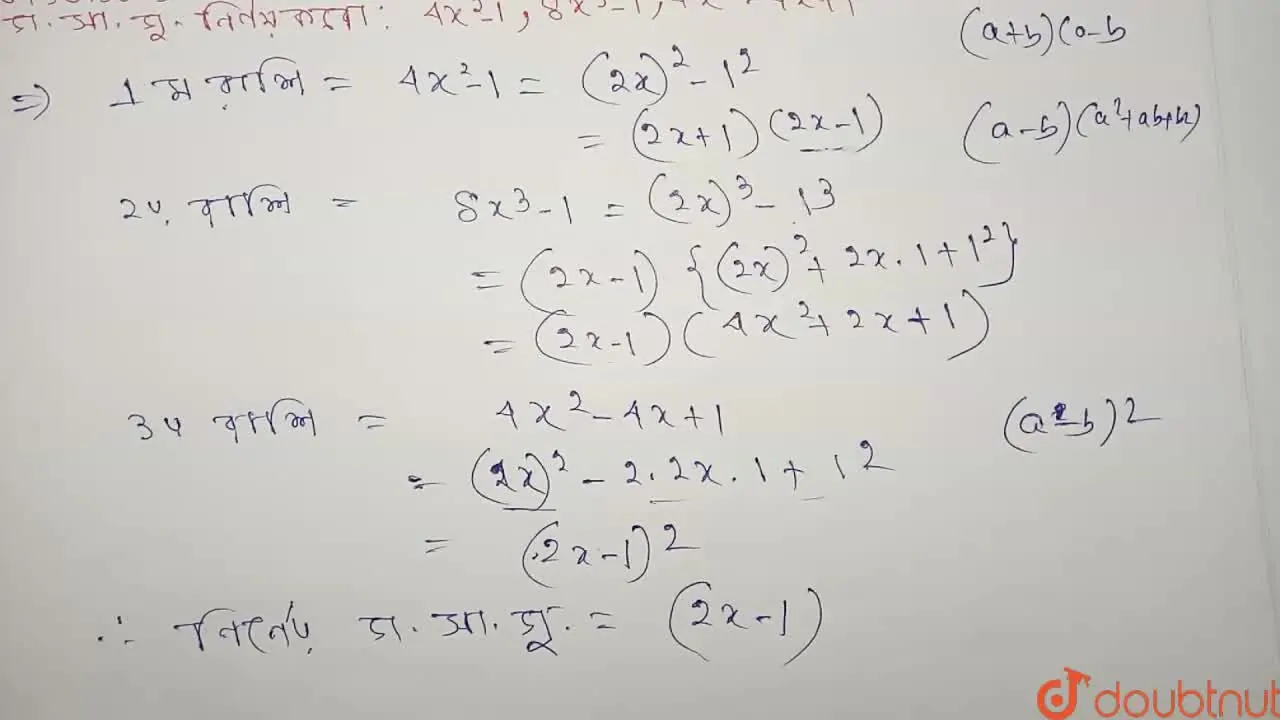 গ. সা. গু. নির্ণয় করো: 4x²-1, 8x³-1, 4x²-4x+1
(a+b)(a-b
=> 1ম রাশি = 4x²-1 = (2x)² - 1²
= (2x+1)(2x-1)
(a-b)(a²+ab+b²)
২য় রাশি = 8x³-1 = (2x)³ - 1³
= (2x-1) {(2x)² + 2x.1 + 1²}
= (2x-1)(4x²+2x+1)
৩য় রাশি = 4x²-4x+1
(a-b)2
= (2x)² - 2.2x.1 + 1²
= (2x-1)²
∴ নির্ণেয় গ. সা. গু. = (2x-1)
doubtnut